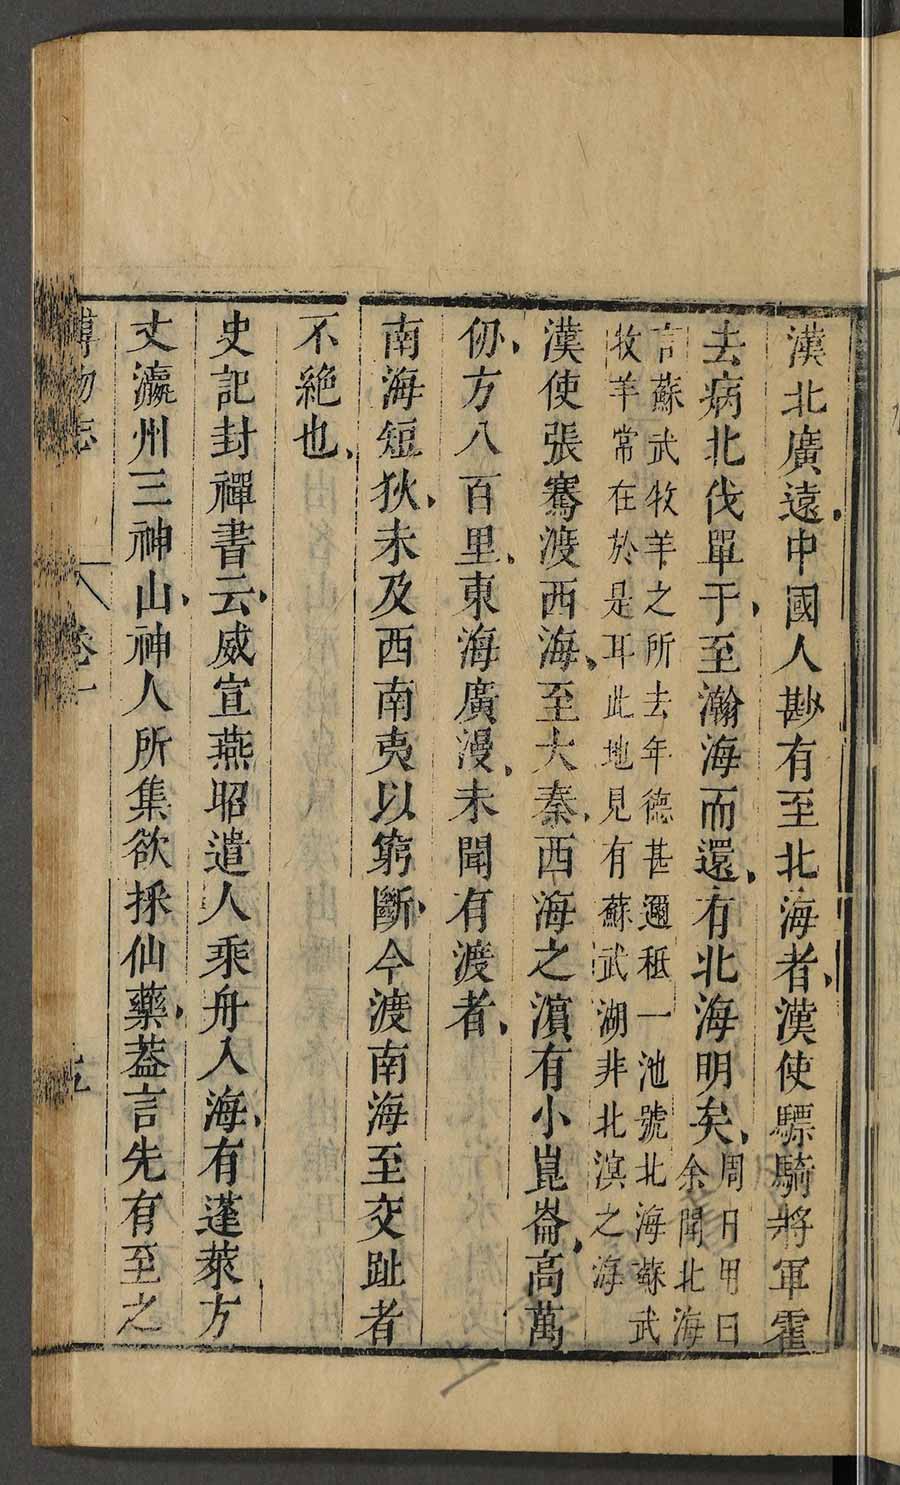 漢北廣遠中國人尠有至北海者漢使驃騎將軍霍
去病北伐單于至瀚海而還有北海明矣周日用曰
余聞北海
言蘇武牧羊之所去年德甚邇秪一池號北海蘇武
牧羊常在於是耳此地見有蘇武湖非北溟之海
漢使張騫渡西海至大秦西海之濵有小崑崙高萬
仞方八百里東海廣漫未聞有渡者
南海短狄未及西南夷以窮斷今渡南海至交趾者
不絶也
史記封禪書云威宣燕昭遣人乘舟入海有蓬萊方
丈瀛州三神山神人所集欲採仙藥葢言先有至之
博物志
卷一